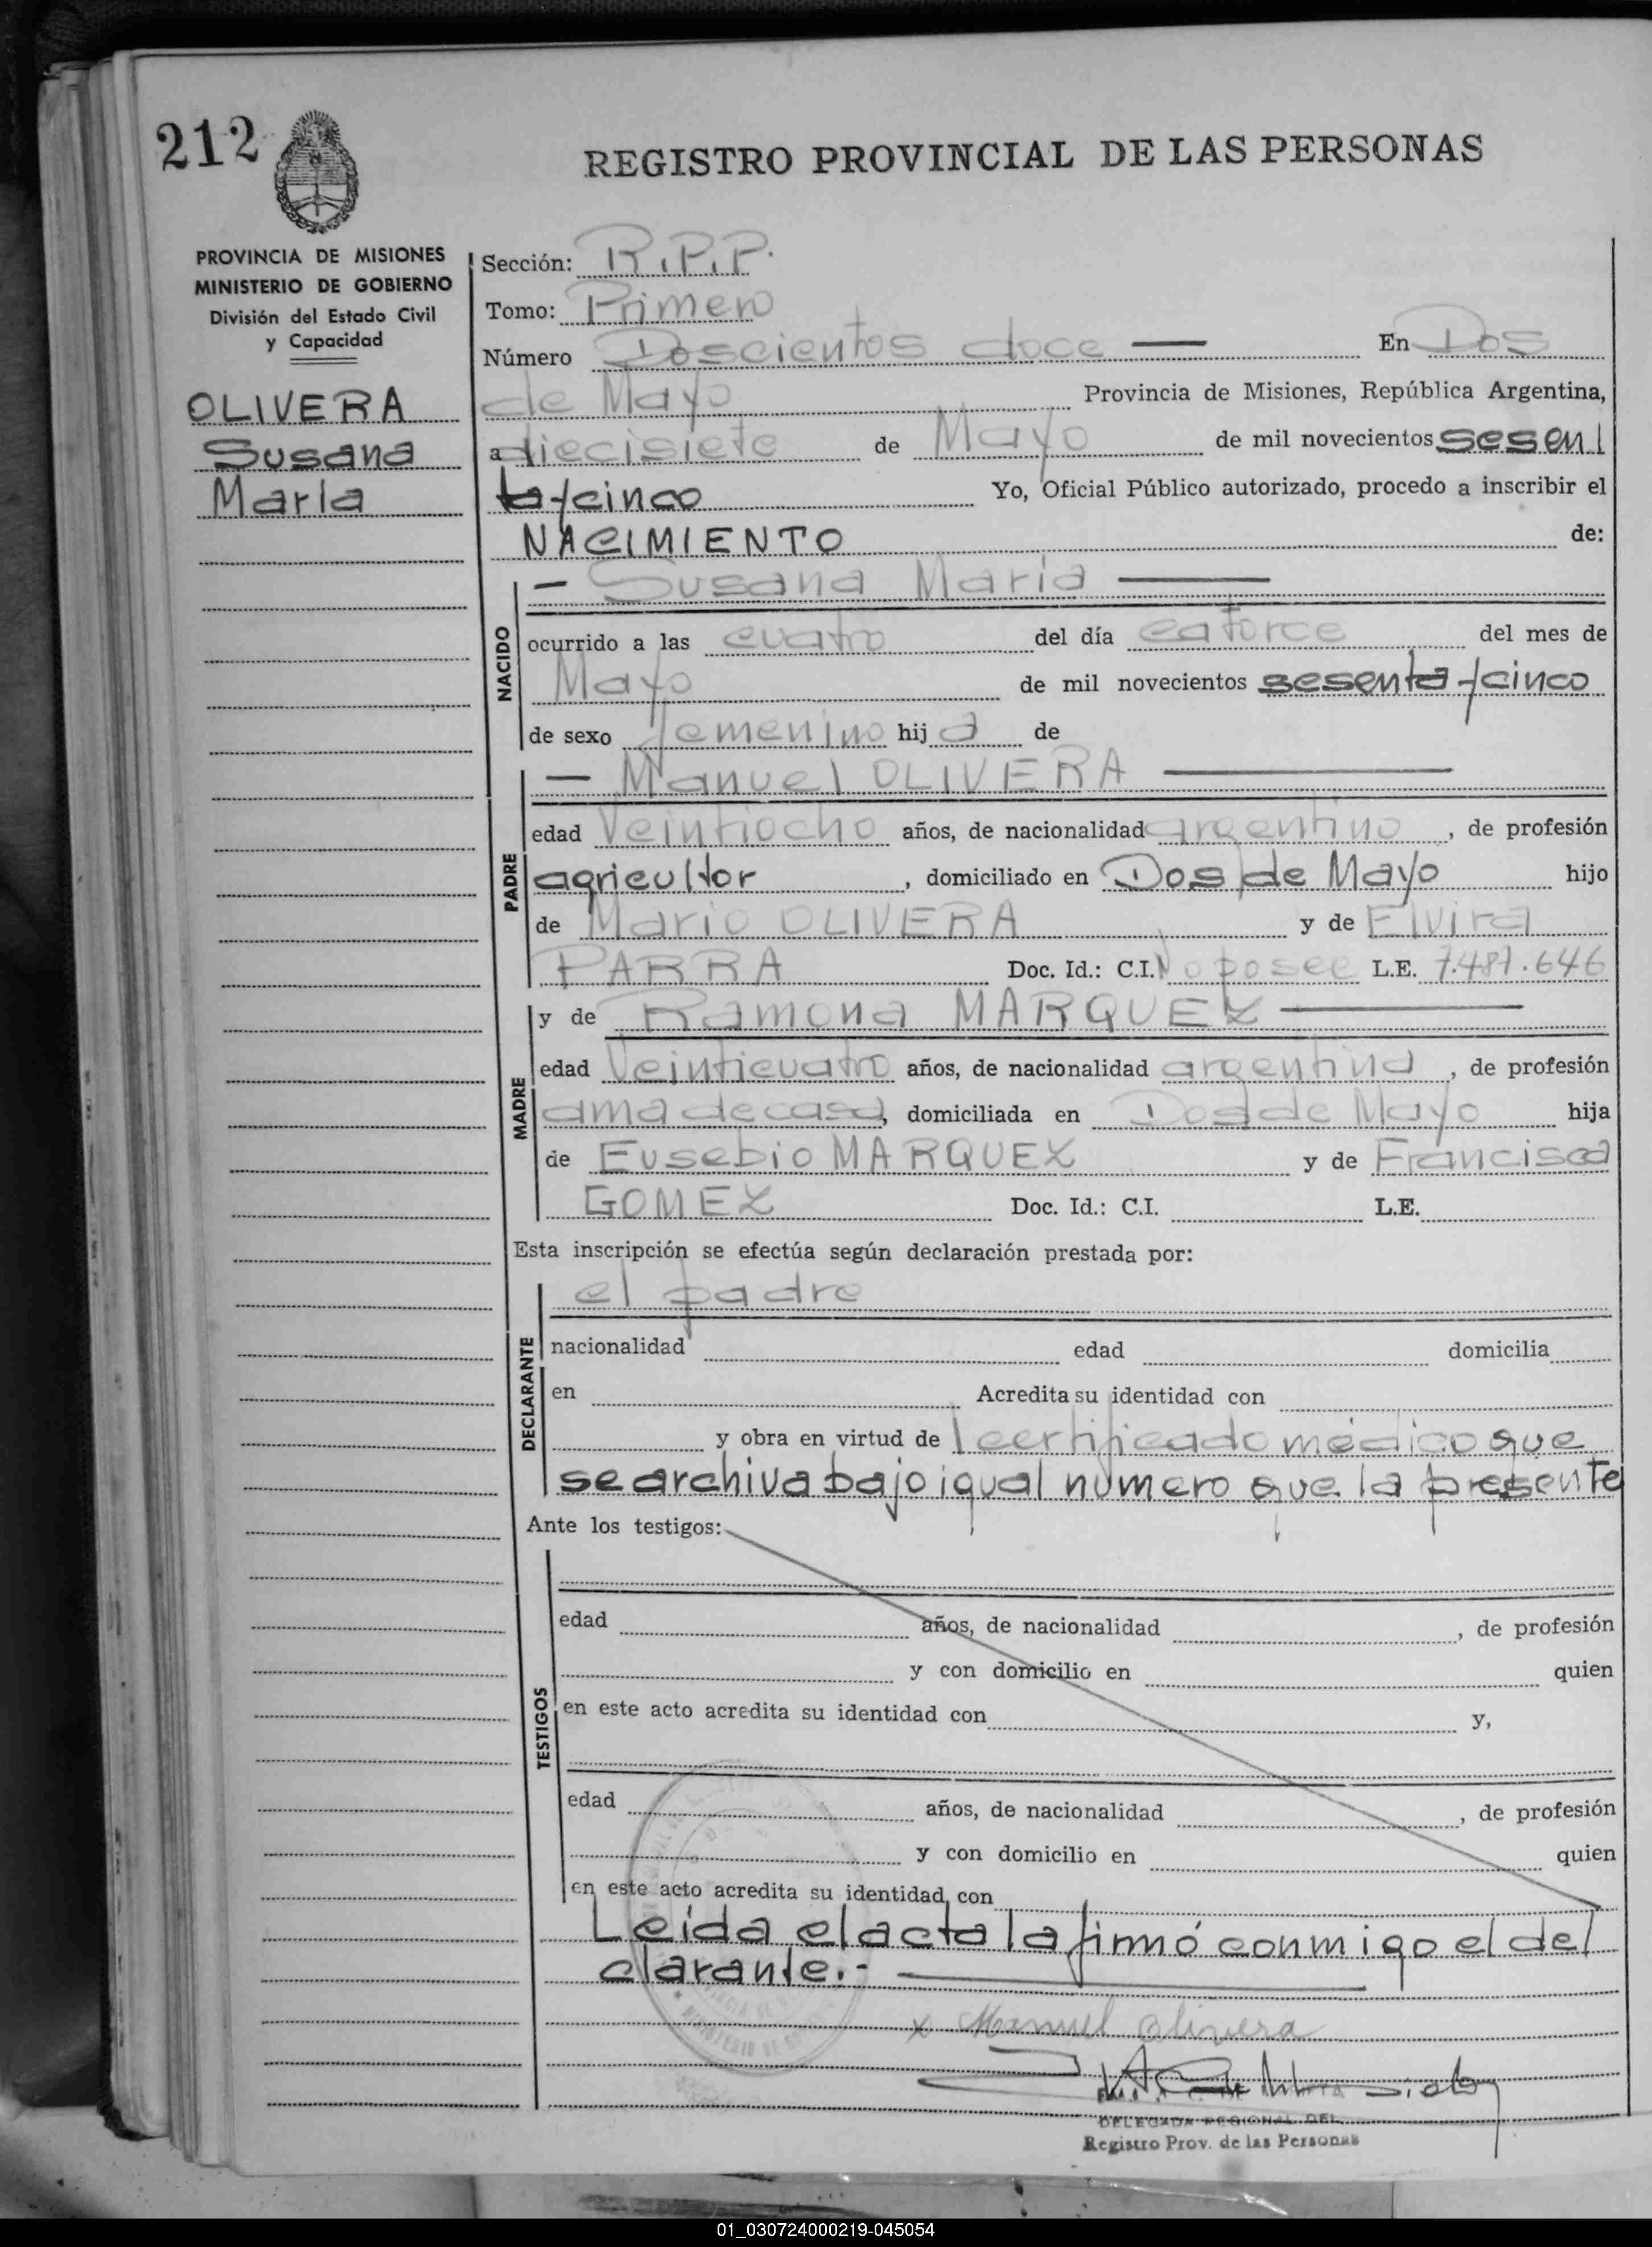 212
REGISTRO PROVINCIAL DE LAS PERSONAS
PROVINCIA DE MISIONES
MINISTERIO DE GOBIERNO
División del Estado Civil
y Capacidad
OLIVERA
Susana
María
Sección: R.P.P.
Tomo: Primero
Número Doscientos doce — En Dos
de Mayo Provincia de Misiones, República Argentina,
a diecisiete de Mayo de mil novecientos sesen
ta y cinco Yo, Oficial Público autorizado, procedo a inscribir el
NACIMIENTO de:
NACIDO
— Susana María —
ocurrido a las cuatro del día catorce del mes de
Mayo de mil novecientos sesenta y cinco
de sexo femenino hija de
PADRE
— Manuel OLIVERA —
edad Veintiocho años, de nacionalidad argentino, de profesión
agricultor, domiciliado en Dos de Mayo hijo
de Mario OLIVERA y de Elvira
PARRA Doc. Id.: C.I. No posee L.E. 7.487.646
MADRE
y de Ramona MARQUEZ —
edad Veinticuatro años, de nacionalidad argentina, de profesión
ama de casa, domiciliada en Dos de Mayo hija
de Eusebio MARQUEZ y de Francisca
GOMEZ Doc. Id.: C.I. L.E.
Esta inscripción se efectúa según declaración prestada por:
DECLARANTE
el padre
nacionalidad edad domicilia
en Acredita su identidad con
y obra en virtud de l certificado médico que
se archiva bajo igual número que la presente
Ante los testigos:
TESTIGOS
edad años, de nacionalidad , de profesión
y con domicilio en quien
en este acto acredita su identidad con y,
edad años, de nacionalidad , de profesión
y con domicilio en quien
en este acto acredita su identidad con
Leída el acta la firmó conmigo el de
clarante.- —
x Manuel Olivera
DELEGADA REGIONAL DEL
Registro Prov. de las Personas
01_030724000219-045054